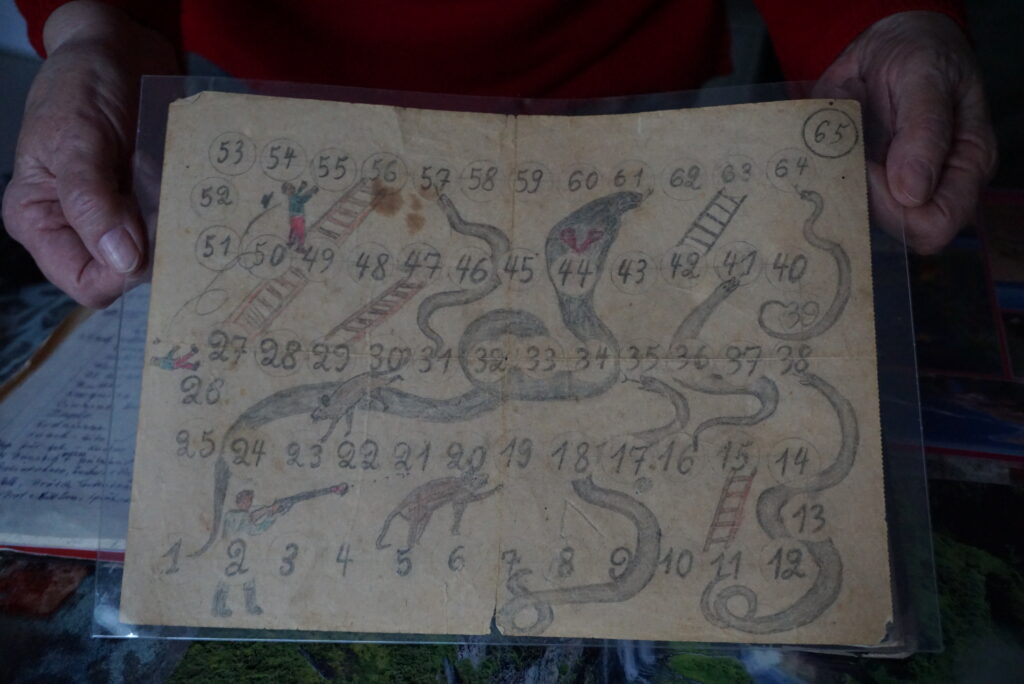 65
53 54 55 56 57 58 59 60 61 62 63 64
52
51 50 49 48 47 46 45 44 43 42 41 40
39
27 28 29 30 31 32 33 34 35 36 37 38
28
25 24 23 22 21 20 19 18 17 16 15 14
13
1 2 3 4 5 6 7 8 9 10 11 12